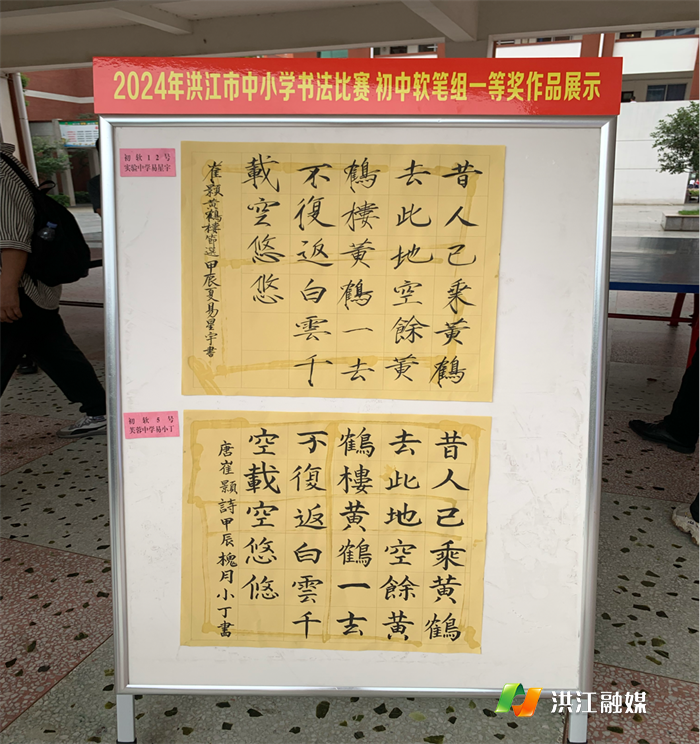 2024年洪江市中小学书法比赛 初中软笔组一等奖作品展示
初软12号
实验中学易星宇
昔人已乘黄鶴
去此地空餘黄
鶴樓黄鶴一去
不復返白雲千
載空悠悠
崔顥黄鶴樓節選甲辰夏易星宇書
初软5号
芙蓉中学易小丁
昔人已乘黄鶴
去此地空餘黄
鶴樓黄鶴一去
不復返白雲千
空載空悠悠
唐崔顥詩甲辰槐月小丁書
洪江融媒